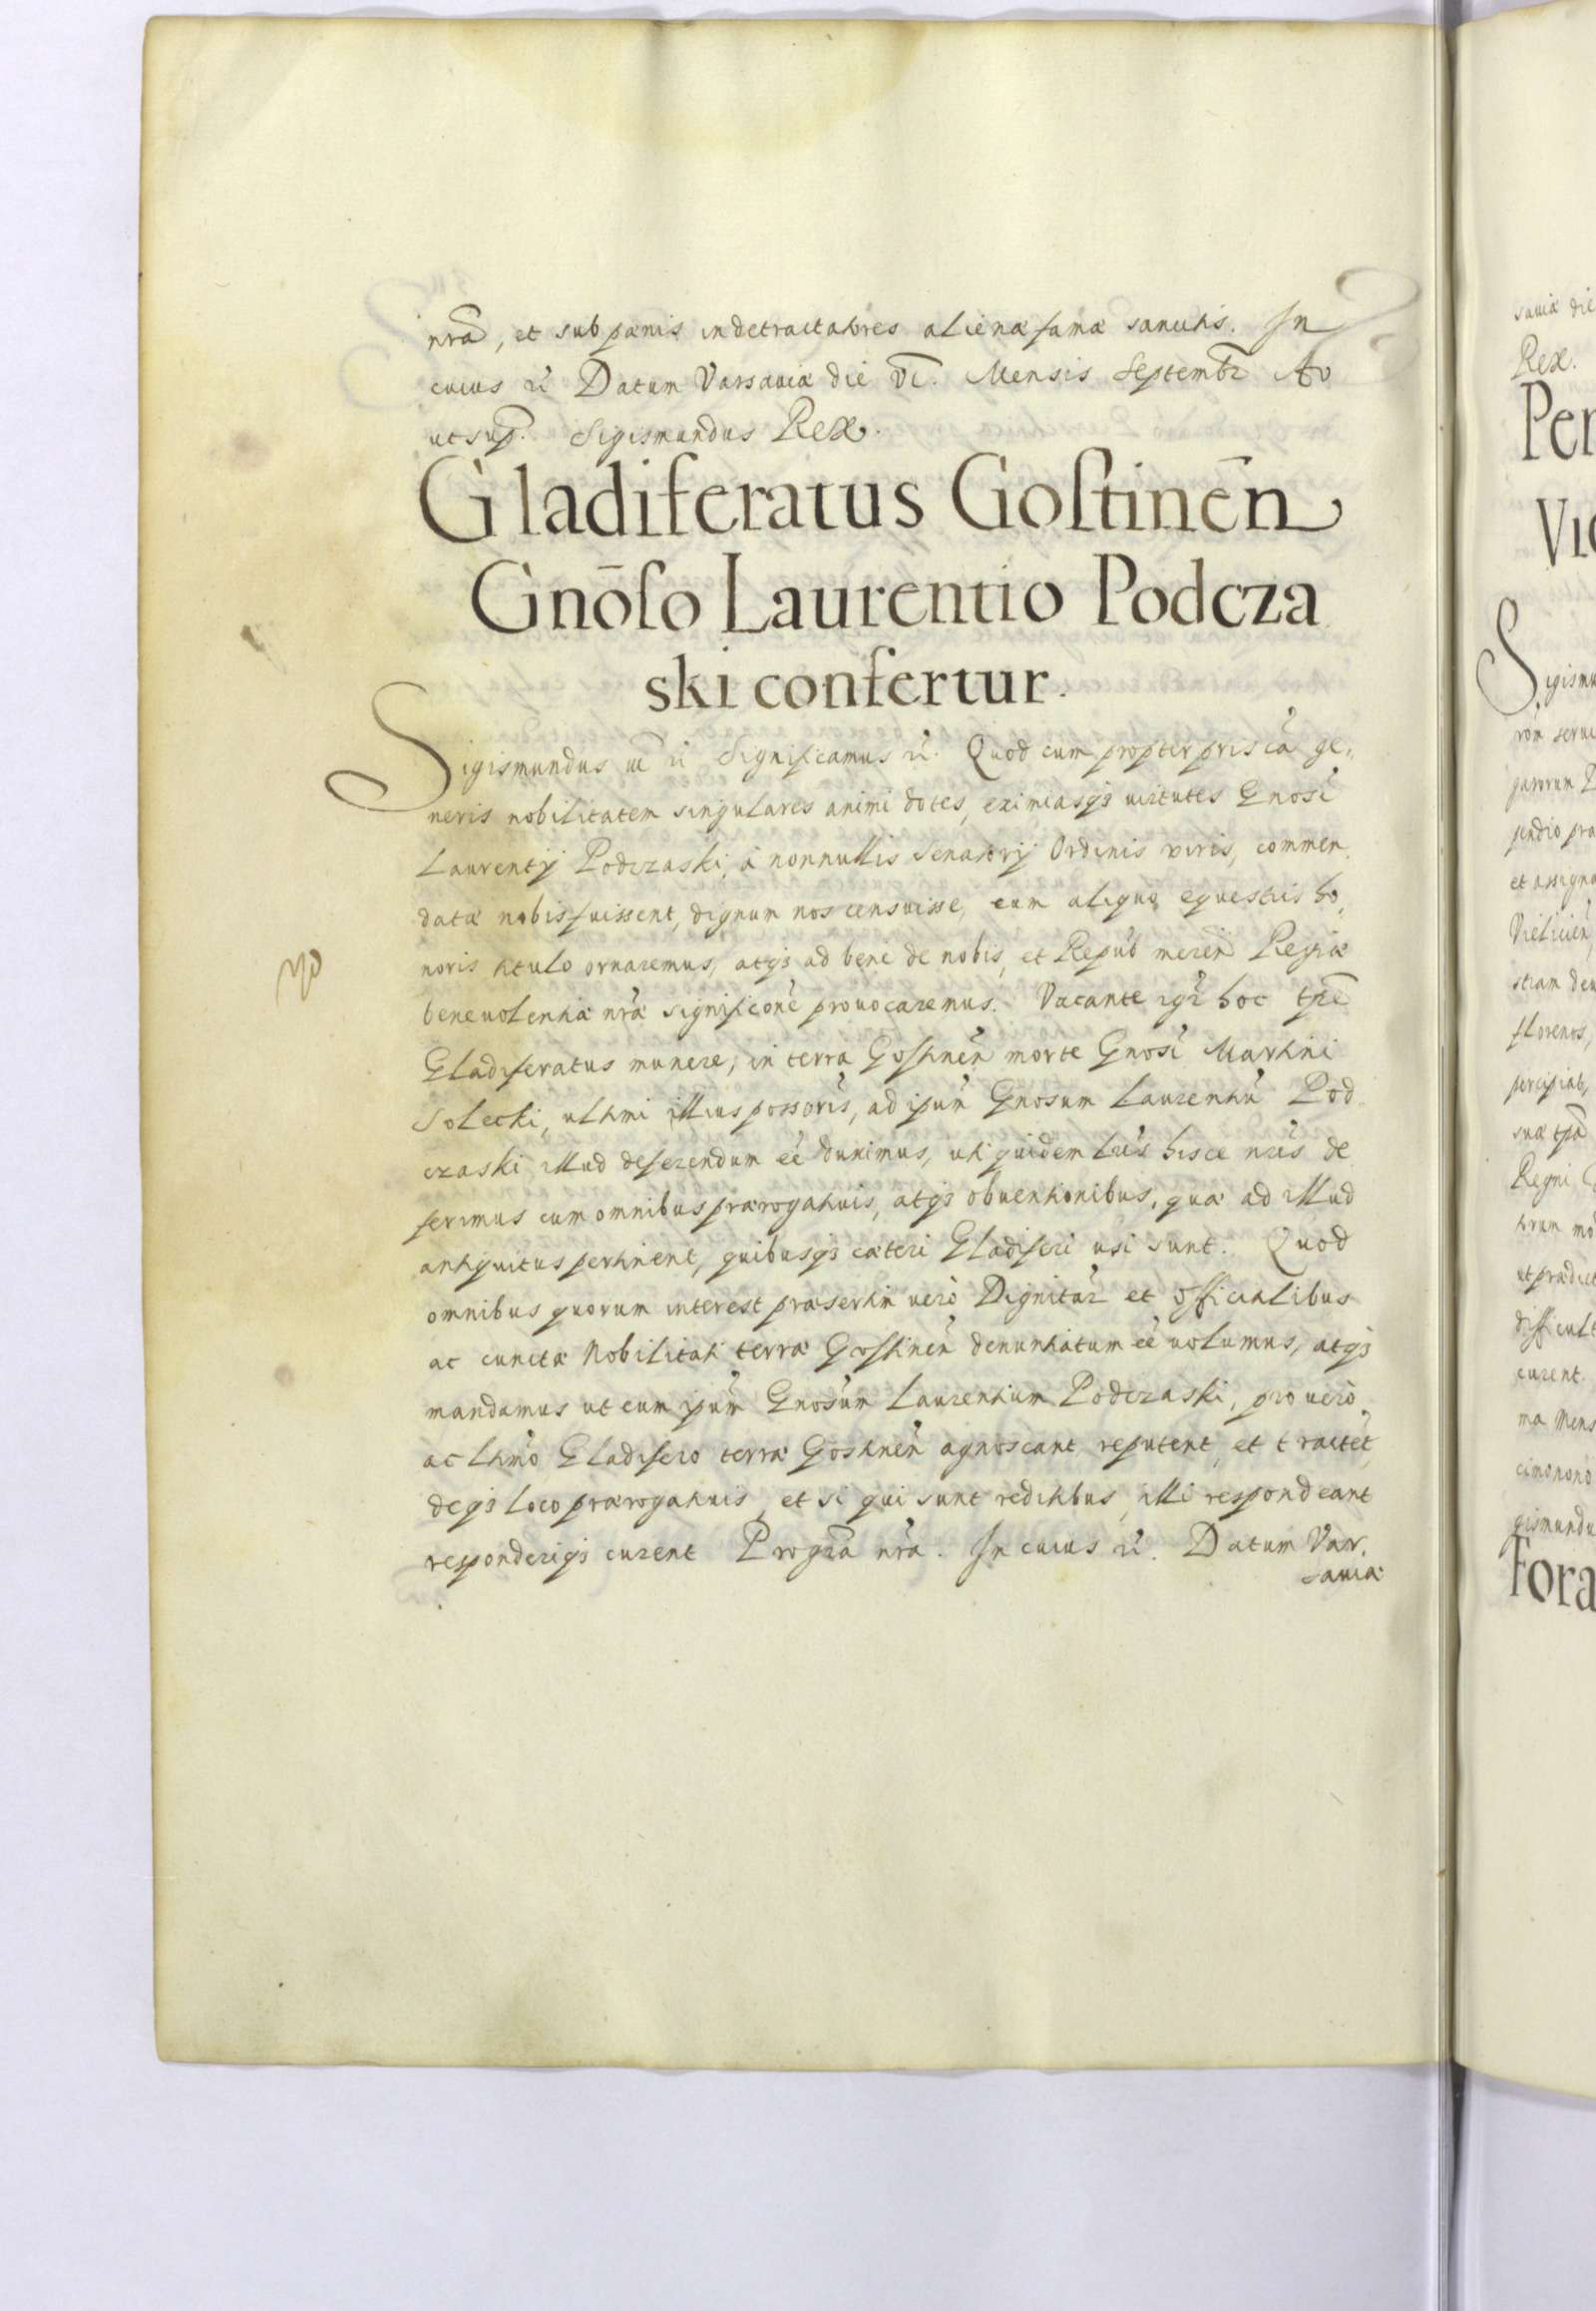 nrã, et sub pænis in detractatores alienæ famæ sancitis. In
cuius ꝛc̃ Datum Varsaviæ die VI. Mensis Septembr̃ Ao
ut sup̃. Sigismundus Rex.
Gladiferatus Goſtinẽn
Gnõſo Laurentio Podcza
ski confertur.
Sigismundus ꝛc̃ Significamus ꝛc̃. Quod cum propter priscã ge,
neris nobilitatem singulares animi dotes, eximiasqȝ uirtutes Gnosi
Laurentij Podczaski, à nonnullis Senatorij Ordinis viris, commen,
datæ nobis fuissent, dignum nos censuisse, eum aliquo equestris ho,
noris titulo ornaremus, atqȝ ad bene de nobis, et Repub merẽn Regiæ
beneuolentiæ nr̃æ significõne prouocaremus. Vacante igr̃ hoc tp̃re
Gladiferatus munere, in terra Gostinẽn morte Gnosi Martini
Solecki, ultimi illius possoris, ad ipũm Gnosum Laurentiũ Pod
czaski illud deferendum eẽ duximus, uti quidem lr̃is hisce nr̃is de
ferimus cum omnibus prærogatiuis, atqȝ obuentionibus, quæ ad illud
antiquitus pertinent, quibusqȝ cæteri Gladiferi usi sunt. Quod
omnibus quorum interest præsertim uerò Dignitar̃ et officialibus
ac cunctæ Nobilitati terræ Gostinẽn denuntiatum eẽ uolumus, atqȝ
mandamus ut eum ipũm Gnosũm Laurentium Podczaski, pro uerò
ac ltĩmo Gladifero terræ Gostinẽn agnoscant reputent, et tractẽt,
deqȝ loco prærogatiuis, et si qui sunt reditibus, illi respondeant
responderiqȝ curent Pro gr̃a nr̃a. In cuius ꝛc̃. Datum Var,
saviæ
saviæ die
Rex.
Per
Sigismu
et assigna
florenos,
percipiat,
Regni
ut prædict
difficult
curent.
ma Mens
gismundu
Fora